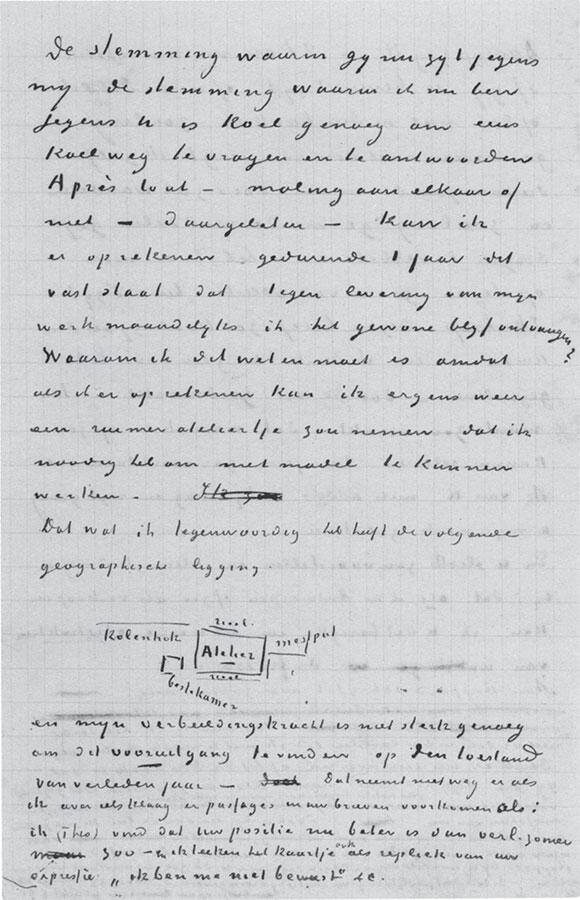 De stemming waarin gy nu zyt jegens
my de stemming waarin ik nu ben
jegens U is koel genoeg om eens
koelweg te vragen en te antwoorden
Après tout – maling aan elkaar of
niet – daargelaten – kan ik
er op rekenen gedurende 1 jaar dit
vast staat dat tegen levering van myn
werk maandelyks ik het gewone blyf ontvangen?
Waarom ik dit weten moet is omdat
als ik er op rekenen kan ik ergens weer
een ruimer ateliertje zou nemen dat ik
noodig heb om met model te kunnen
werken.
Dat wat ik tegenwoordig heb heeft de volgende
geographische ligging.
riool
Kolenhok Atelier mestput
riool
bestekamer
en myn verbeeldingskracht is niet sterk genoeg
om dit vooruitgang te vinden op den toestand
van verleden jaar – Dat neemt niet weg er als
ik over iets klaag er passages in uw brieven voorkomen als:
ik (Theo) vind dat uw positie nu beter is dan verl. zomer
zoo – ik teeken het kaartje ook als repliek van uw
expressie „ik ben me niet bewust" &c.